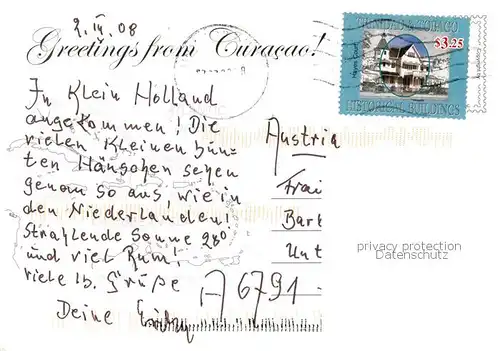 2. IV. 08
Greetings from Curaçao!
TRINIDAD & TOBAGO
$3.25
HISTORICAL BUILDINGS
In Klein Holland
angekommen! Die
vielen kleinen bun=
ten Häuschen sehen
genau so aus, wie in
den Niederlanden!
Strahlende Sonne 28°
und viel Rum!
viele lb. Grüße
Deine
Austria
Frai
Bart
Unt
A 6791
privacy protection
Datenschutz